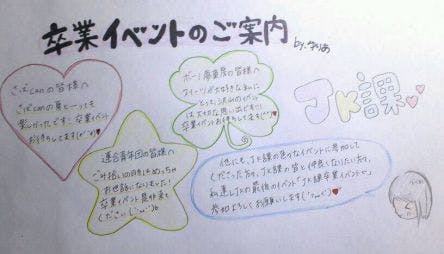 卒業イベントのご案内
by.ゆりあ
さばcanの皆様へ
さばcanの夏とっても
楽しかったです!卒業イベント
お待ちしてます
ボーノ商業房の皆様へ
スイーツが大好きな私に
とって、沢山のイベント
は大切な思い出です!!
卒業イベントお待ちしてます
JK課
連合青年団の皆様へ
ごみ拾いの時はめっちゃ
お世話になりました!
卒業イベント是非来て
ください
他にも、JK課の色々なイベントに参加して
くださった方々、JK課の皆と仲良くなりたい方々、
私達JKの最後のイベント「JK課卒業イベント」へ
参加よろしくお願いします